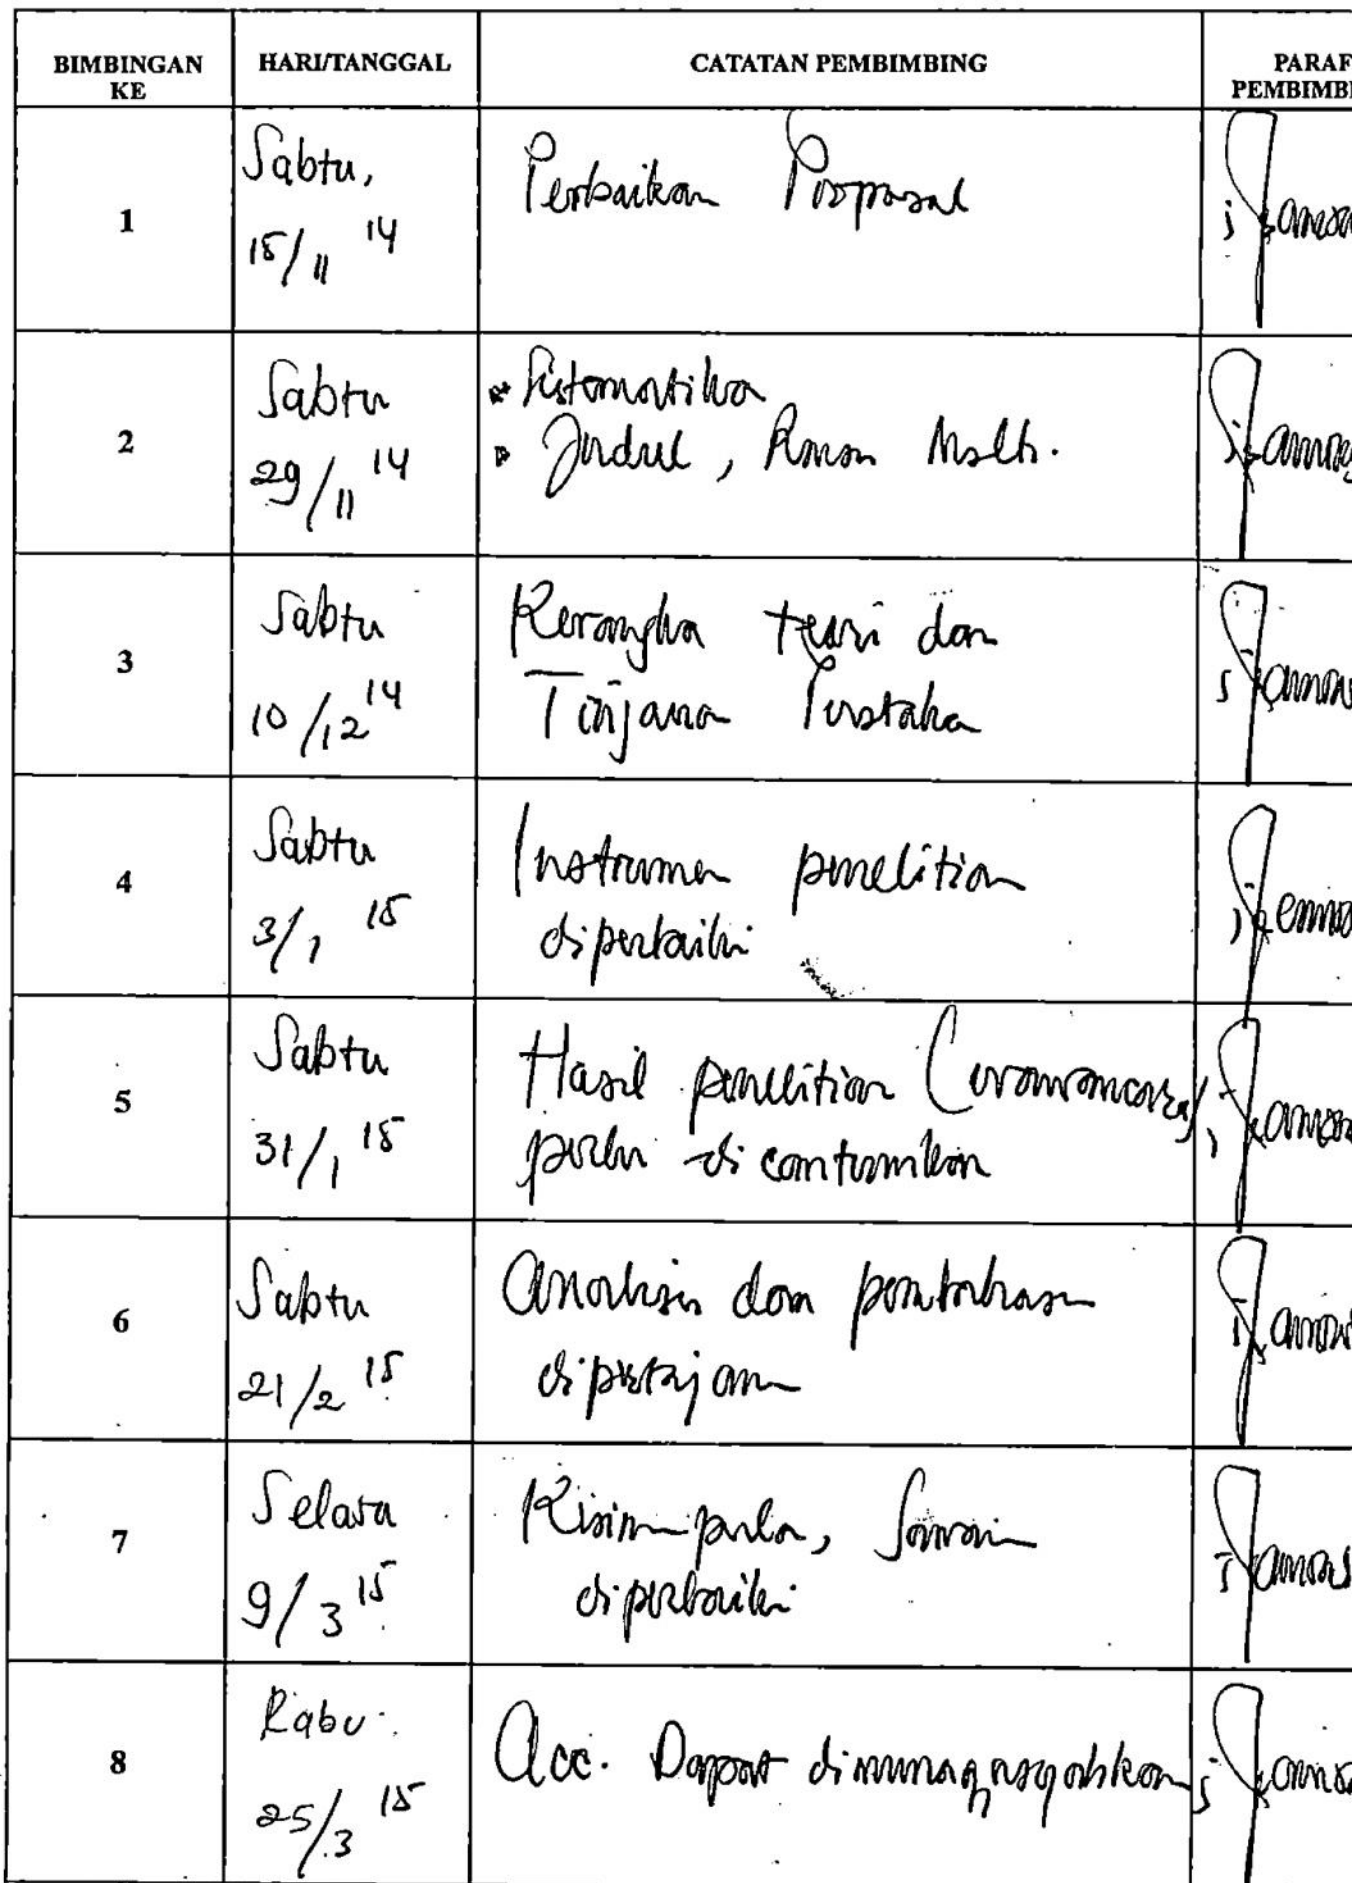 BIMBINGAN KE HARI/TANGGAL CATATAN PEMBIMBING PARAF PEMBIMBI
1
Sabtu,
15/11 14
Perbaikan Proposal
2
Sabtu
29/11 14
Sistematika
Judul, Rumusan Mslh.
3
Sabtu
10/12 14
Kerangka teori dan
Tinjauan Pustaka
4
Sabtu
3/1 15
Instrumen penelitian
diperbaiki
5
Sabtu
31/1 15
Hasil penelitian (wawancara)
perlu dicantumkan
6
Sabtu
21/2 15
Analisis dan pembahasan
dipertajam
7
Selasa
9/3 15
Kesimpulan, Saran
diperbaiki
8
Rabu
25/3 15
Acc. Dapat dimunaqasyahkan